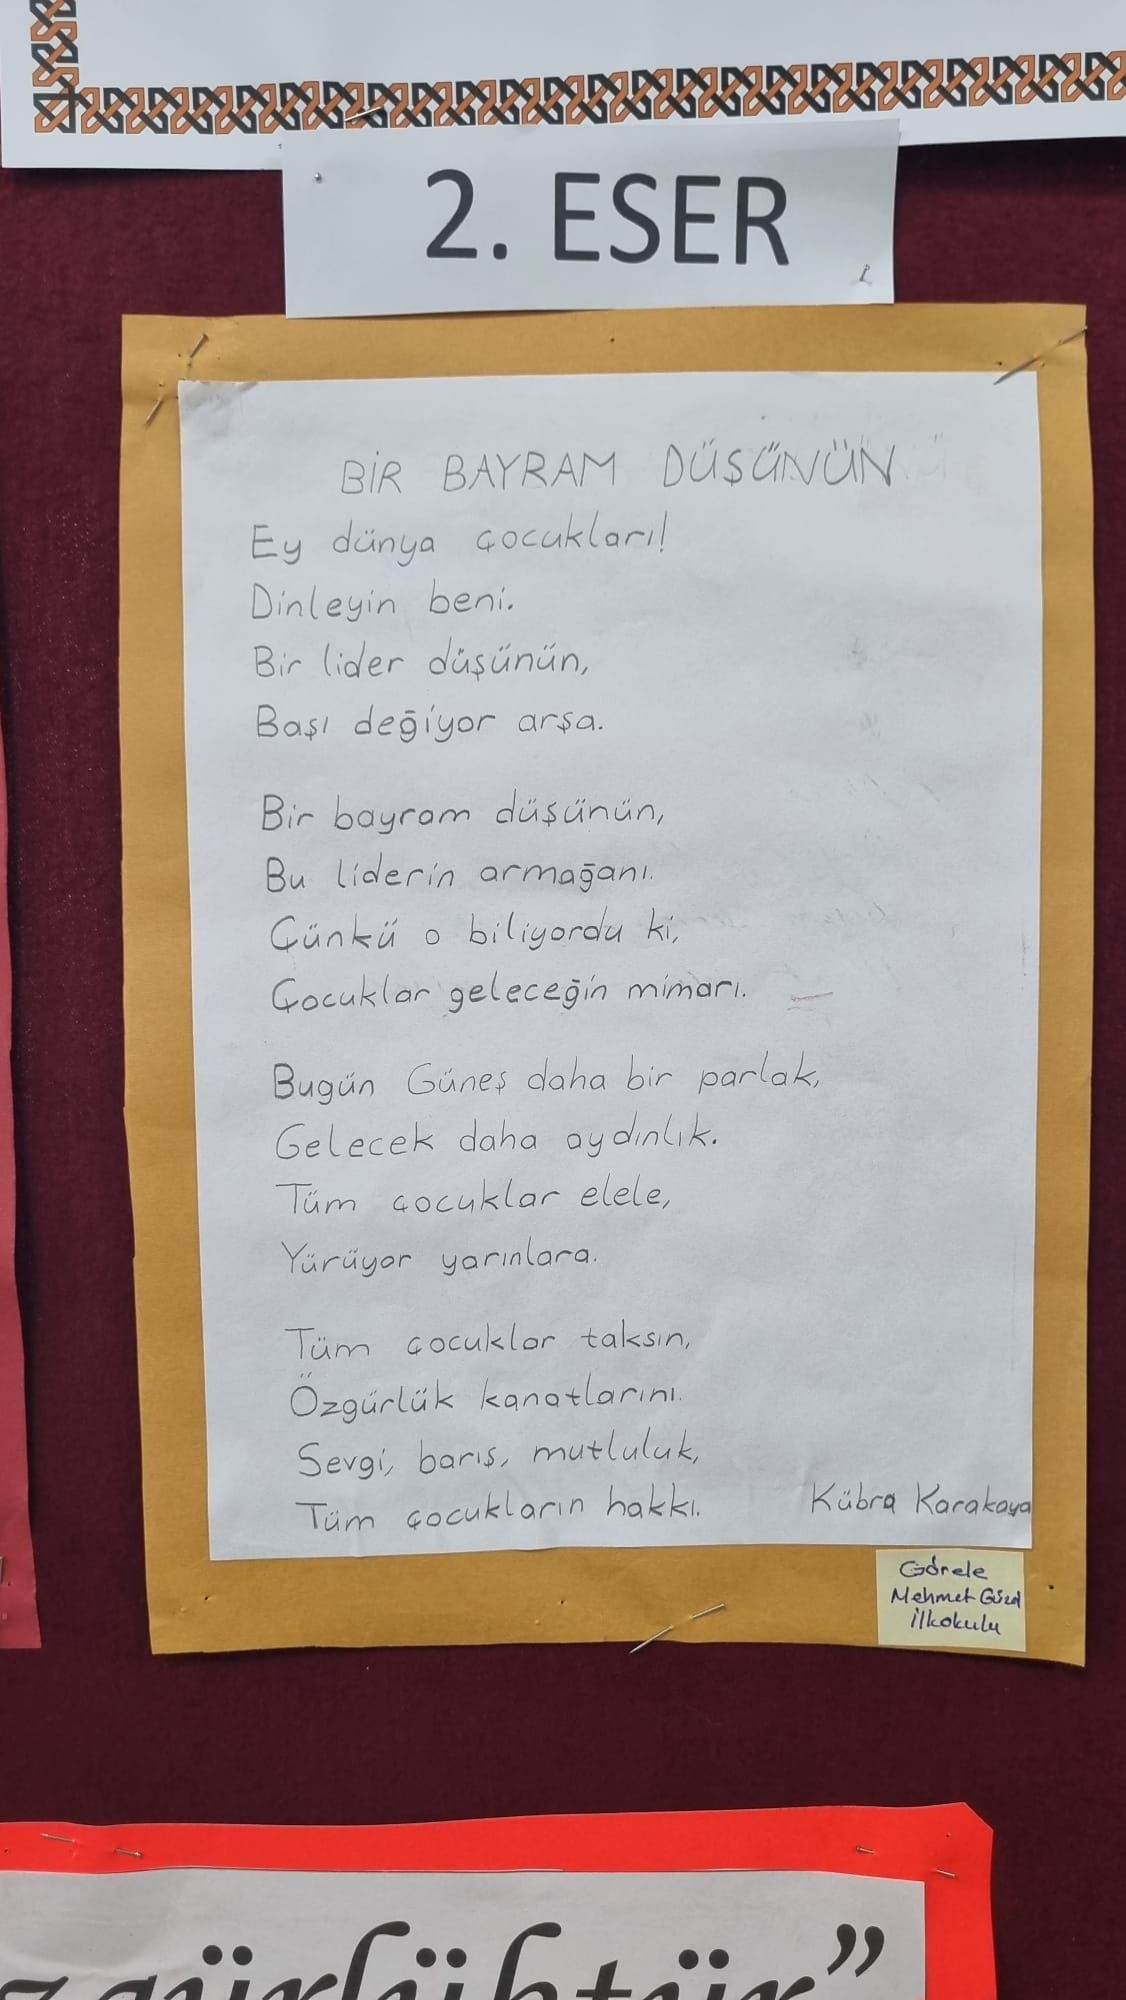 2. ESER
BİR BAYRAM DÜŞÜNÜN
Ey dünya çocukları!
Dinleyin beni.
Bir lider düşünün,
Başı değiyor arşa.
Bir bayram düşünün,
Bu liderin armağanı.
Çünkü o biliyordu ki,
Çocuklar geleceğin mimarı.
Bugün Güneş daha bir parlak,
Gelecek daha aydınlık.
Tüm çocuklar elele,
Yürüyor yarınlara.
Tüm çocuklar taksın,
Özgürlük kanatlarını.
Sevgi, barış, mutluluk,
Tüm çocukların hakkı.
Kübra Karakaya
Görele
Mehmet Güzel
İlkokulu